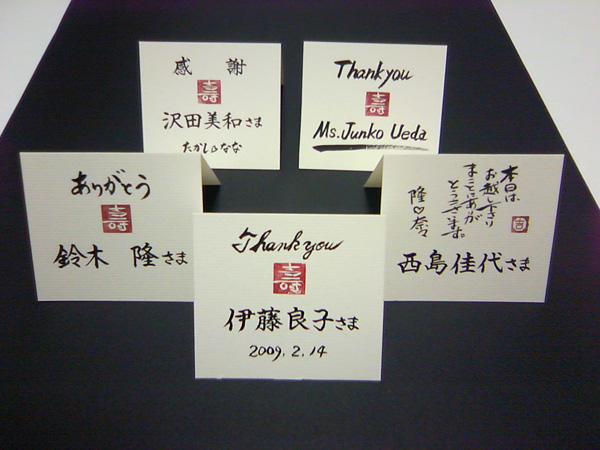 感謝
壽
沢田美和さま
たかし♡なな
Thankyou
壽
Ms.Junko Ueda
ありがとう
壽
鈴木 隆さま
Thankyou
壽
伊藤良子さま
2009.2.14
本日は
お越し下さり
まことにありが
とうございます。
隆♡奈々
西島佳代さま